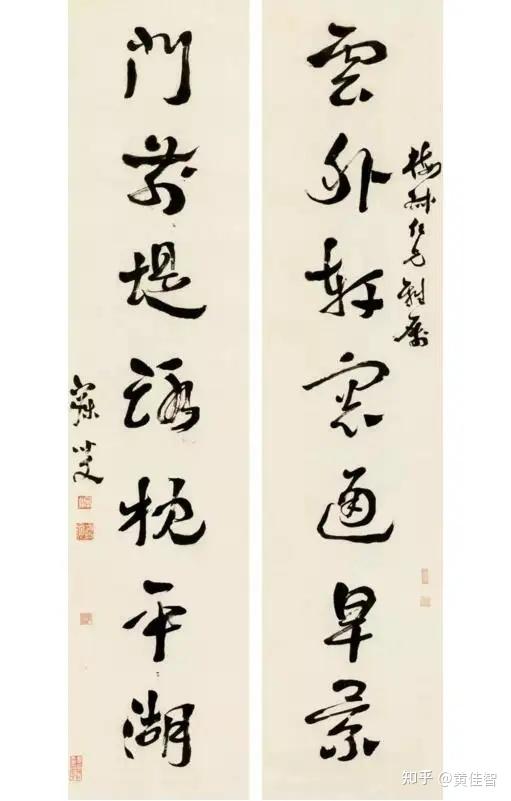 梅仁兄雅屬
雲外軒窗通早景
門前堤路枕平湖
寐叟
知乎 @黄佳智